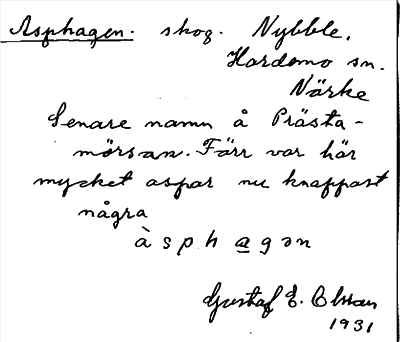 Asphagen. skog. Nybble.
Hardemo sn.
Närke
Senare namn å Prästa-
mörsan. Förr var här
mycket aspar nu knappast
några
àsphagən
Gustaf E. Olsson
1931